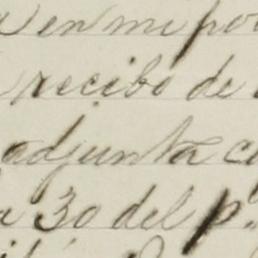 en mi po
recibo de
adjunta c
a 30 del p.